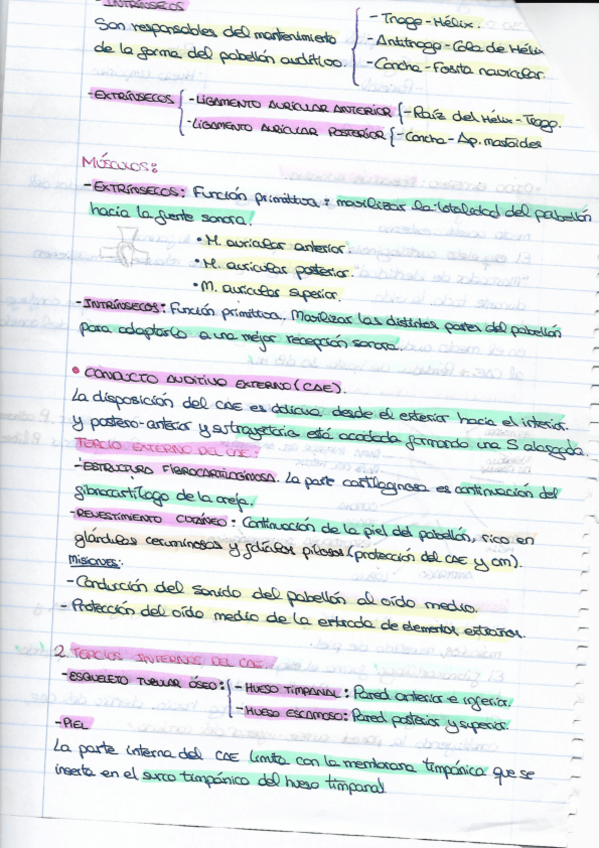 - INTRÍNSECOS
Son responsables del mantenimiento
de la forma del pabellón auditivo.
- Trago - Hélix.
- Antitrago - Cola de Hélix
- Concha - Fosita navicular.
- EXTRÍNSECOS
- LIGAMENTO AURICULAR ANTERIOR - Raíz del Hélix - Trago.
- LIGAMENTO AURICULAR POSTERIOR - Concha - Ap. mastoides
MÚSCULOS:
- EXTRÍNSECOS: Función primitiva: movilizar la totalidad del pabellón
hacia la fuente sonora.
• M. auricular anterior.
• M. auricular posterior.
• M. auricular superior.
- INTRÍNSECOS: Función primitiva. Movilizar las distintas partes del pabellón
para adaptarlo a una mejor recepción sonora.
• CONDUCTO AUDITIVO EXTERNO (CAE).
La disposición del CAE es oblicua desde el exterior hacia el interior.
y postero-anterior y su trayectoria está acodada formando una S alargada.
TERCIO EXTERNO DEL CAE:
- ESTRUCTURA FIBROCARTILAGINOSA. La parte cartilaginosa es continuación del
fibrocartílago de la oreja.
- REVESTIMIENTO CUTÁNEO: Continuación de la piel del pabellón, rico en
glándulas ceruminosas y folículos pilosos (protección del CAE y om).
Misiones:
- Conducción del sonido del pabellón al oído medio.
- Protección del oído medio de la entrada de elementos extraños.
2 TERCIOS INTERNOS DEL CAE.
- ESQUELETO TUBULAR ÓSEO:
- HUESO TIMPANAL: Pared anterior e inferior.
- HUESO ESCAMOSO: Pared posterior y superior.
- PIEL
La parte interna del CAE limita con la membrana timpánica que se
inserta en el surco timpánico del hueso timpanal